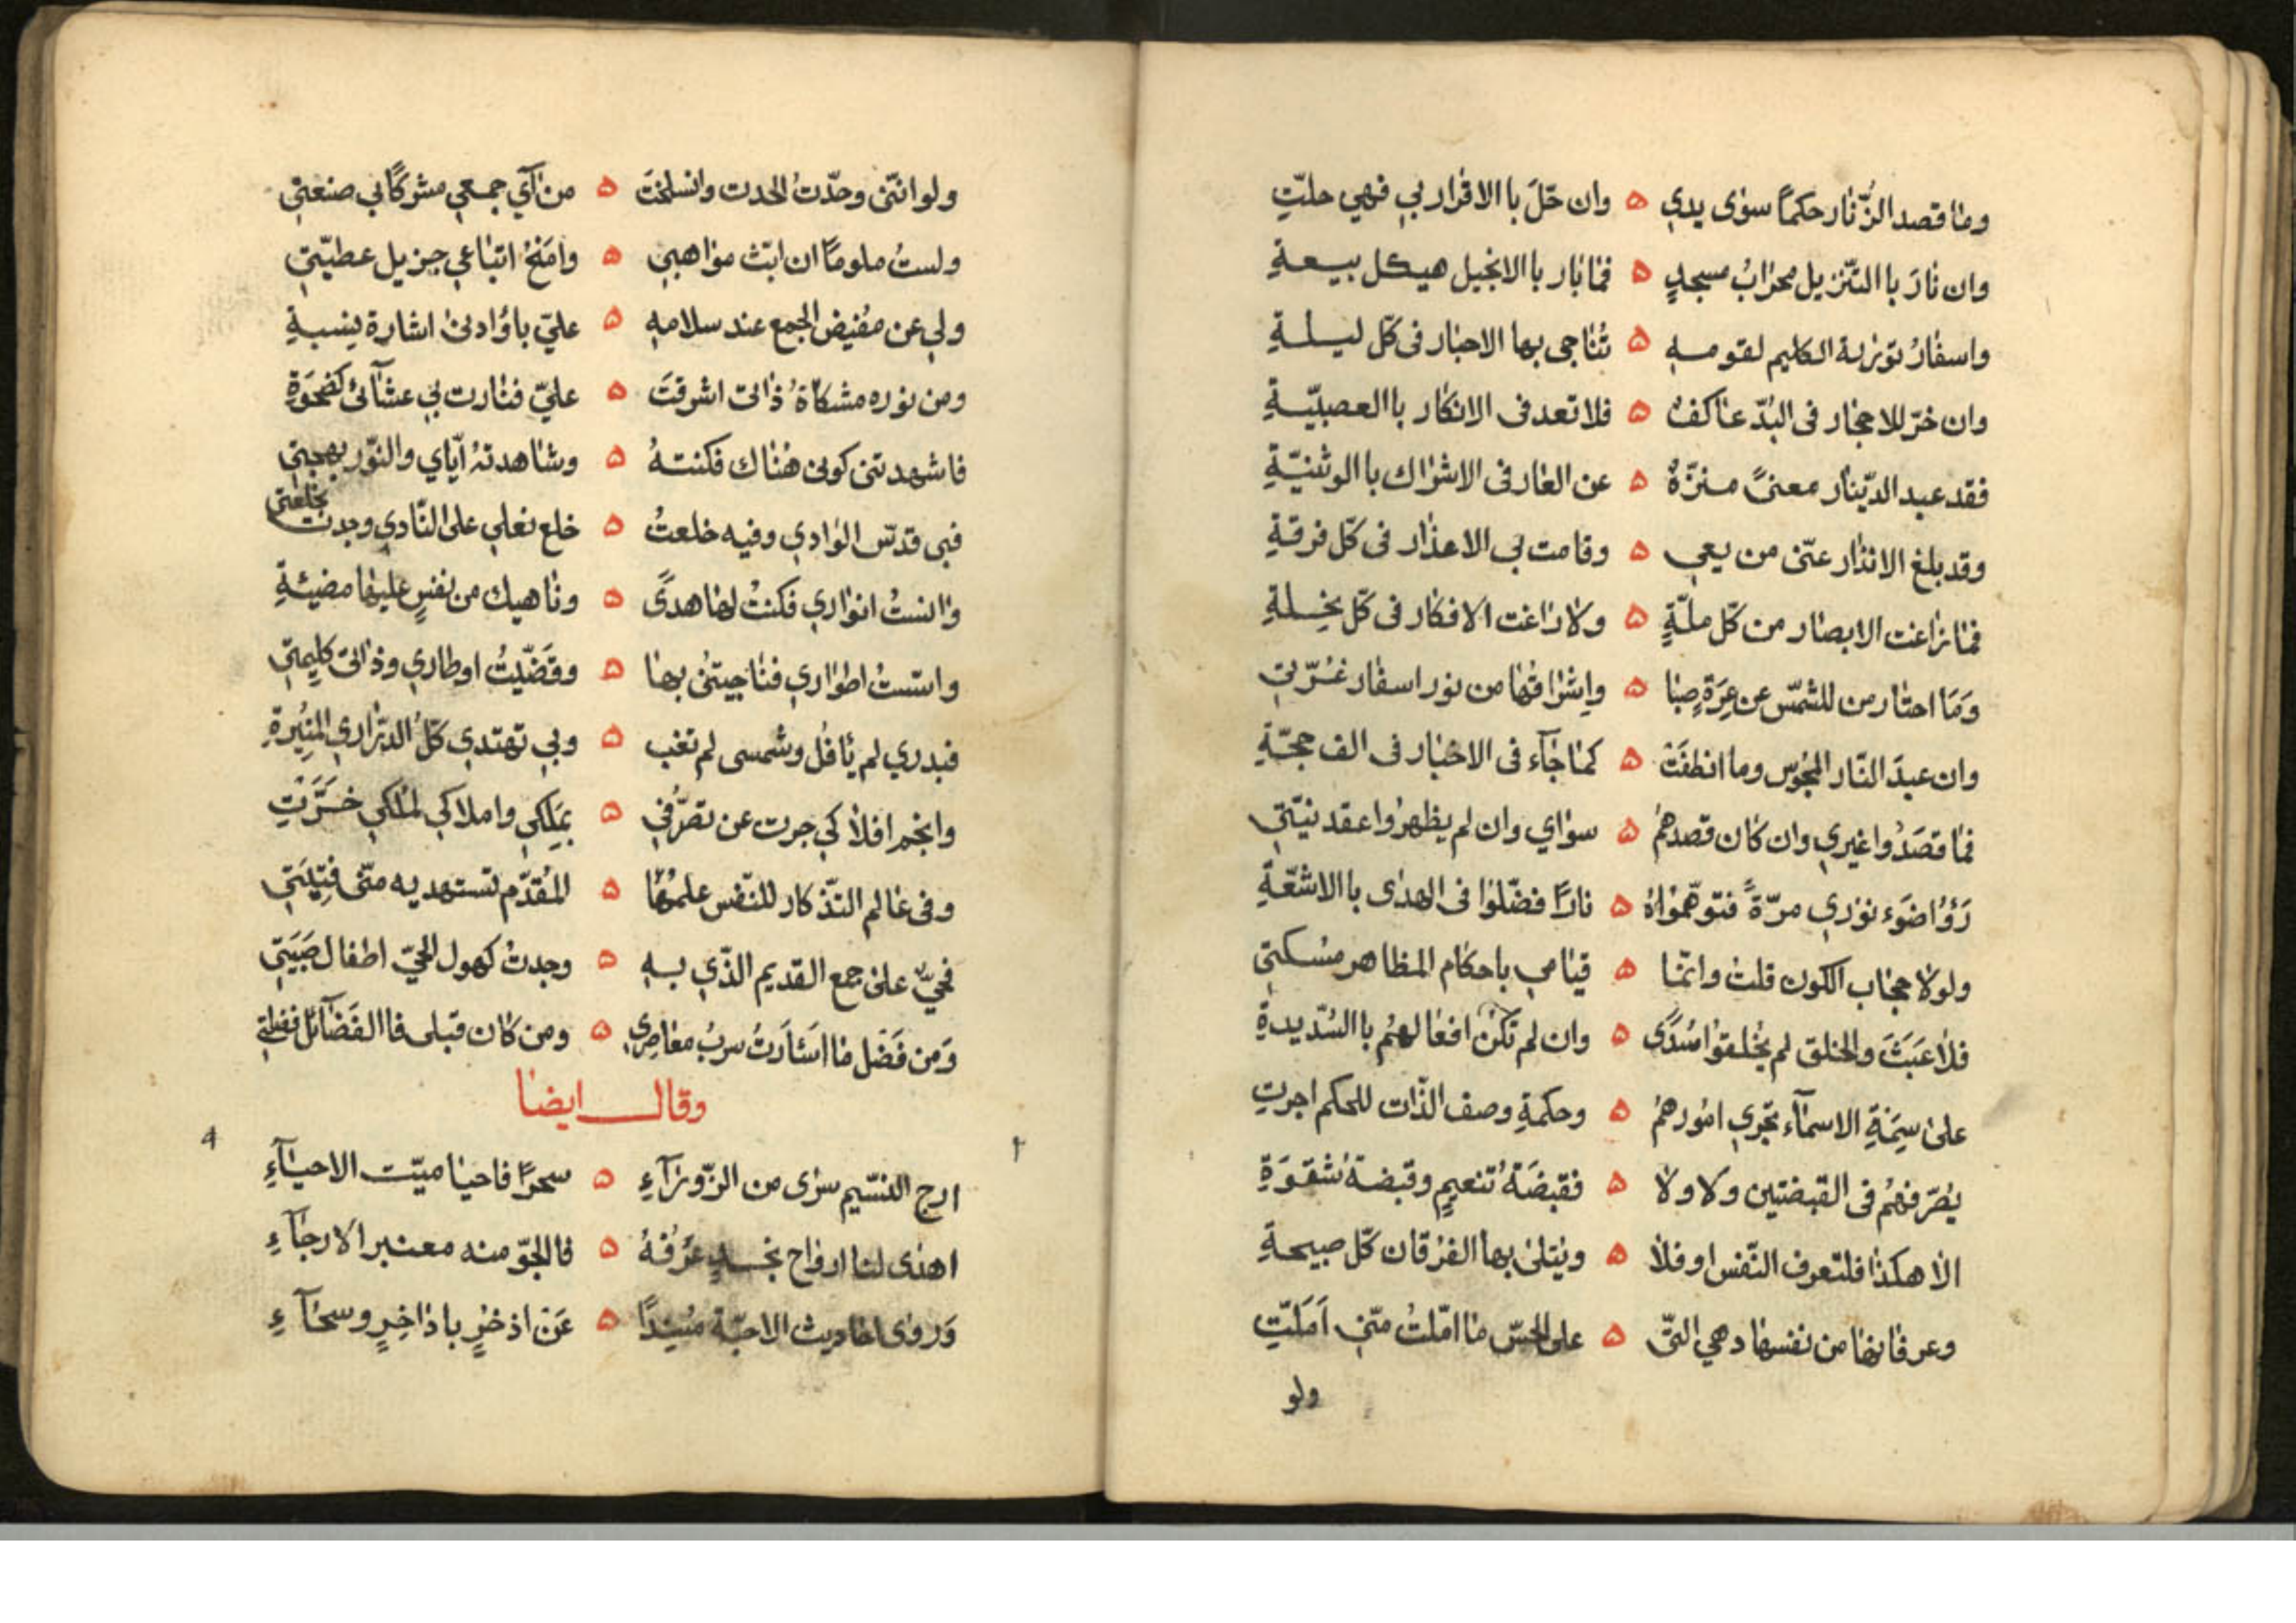 وما قصد الزّنار حكماً سوى يدي ه وان حّلَ با الاقرار بي فهي حلتّتِ
وان نارَ با التنّزيل محرابُ مسجدٍ ه فما بار با الانجيل هيكل بيعةِ
واسفارُ توزىة الكليم لقومه ه تُناجي بها الاحبار فى كّل ليلةِ
وان خرّ للاحجار فى البُدّ عاكفٌ ه فلا تعد فى الانكار با العصبيّةِ
فقد عبد الدّينار معنىً منزّهٌ ه عن العار فى الاشراك با الوثنيّةِ
وقد بلغ الانذار عنّى من يعي ه وقامت بي الاعذار فى كّل فرقةِ
فما زاغت الابصار من كّل ملّةٍ ه ولا زاغت الافكار فى كّل نِحلةِ
وَمَا احتار من للشمّس عن غِرّةٍ صبا ه وإشراقها من نور اسفار غُرّتي
وان عبدَ النّار المجُوس وما انطفَتْ ه كما جاۤء فى الاخبار فى الف حجّةِ
فما قصَدُوا غيري وان كان قصدهمُ ه سواي وان لم يظهرُوا عقد نيّتي
رَؤُا ضوَء نوري مرّةً فتوهّموُاهُ ه نارًا فضّلوا فى الهدى با الاشعّةِ
ولولا حجاب الكون قلت وانمّا ه قيامي باحكام المظاهر مسكتي
فلا عَبَثَ والخلق لم يُخلقوا سُدًى ه وان لم تكنْ افعالهمُ با السّديدةِ
على سِمَةِ الاسماۤء تجري امُورهمُ ه وحكمةِ وصف الذّات للحكم اجرتِ
يُصَرّفهمُ فى القبضتين ولا ولا ه فقبضَةُ تنعيمٍ وقبضةُ شقوَةِ
الا هكذا فلتعرف النّفس او فلا ه ويُتلى بها الفرُقان كّل صبيحةِ
وعرفانها من نفسها وهي التّى ه على الحسّ ما امّلتُ منّي اَمَلَتِّ
ولو
ولو انّنى وحدّتُ الحدت وانسلخَت ه من آي جمعي مشركًا بي صنعتي
ولستُ ملومًا ان ابثّ مواهبي ه وامَنحُ اتباعي جزيل عطيّتي
ولي عن مفُيض الجمع عند سلامه ه عليّ باوُادنىٰ اشارة بنسبةِ
ومن نوره مشكاةُ ذاتى اشرقتَ ه عليّ فنارت بي عشاۤئى كضحوَةِ
فاشهدتنى كونى هُناك فكنتهُ ه وشاهدتهُ آيّاي والنوّر بهجتي
فبي قدسّ الوادي وفيه خلعتُ ه خلع نعلي على النّادي وجدت بخلعتي
واٰنستُ انواري فكنتُ لها هدىً ه وناهيك من نفسٍ عليها مضيئةِ
واسّستُ اطواري فناجيتني بها ه وقَضّيتُ اوطاري وذاتى كليمتي
فبدري لم يأفُل وشمسى لم تغب ه وبي تهتدي كّلُ الدّراري المنُيرةِ
وانجم افلاكي جرت عن تصَرّفي ه بمَلِكي واملاكي لملكي خَرَّتِ
وفى عالم التذّكار للنّفس علمُها ه المُقدّم تستهديه منّى فِتيَتي
فحَيَّ علىٰ جمع القديم الذّي به ه وجدتُ كهول الحيّ اطفال صَبيَتي
وَمن فَضل ما اسَأرَتُ سربُ معاصِري ه ومن كان قبلى فا الفَضاۤئل فضلتي
وقال ايضا
ارج النسّيم سرى من الزّوراۤءِ ه سحرًا فاحيا ميتّت الاحياۤءِ
اهدى لنا ارواح نجدٍ عَرْفهُ ه فا لجوّ منه معنبر الارجاۤءِ
وَروى احاديث الاحبّة مسُندًا ه عَن اذخرٍ با ذاخِرٍ وسحاۤءِ